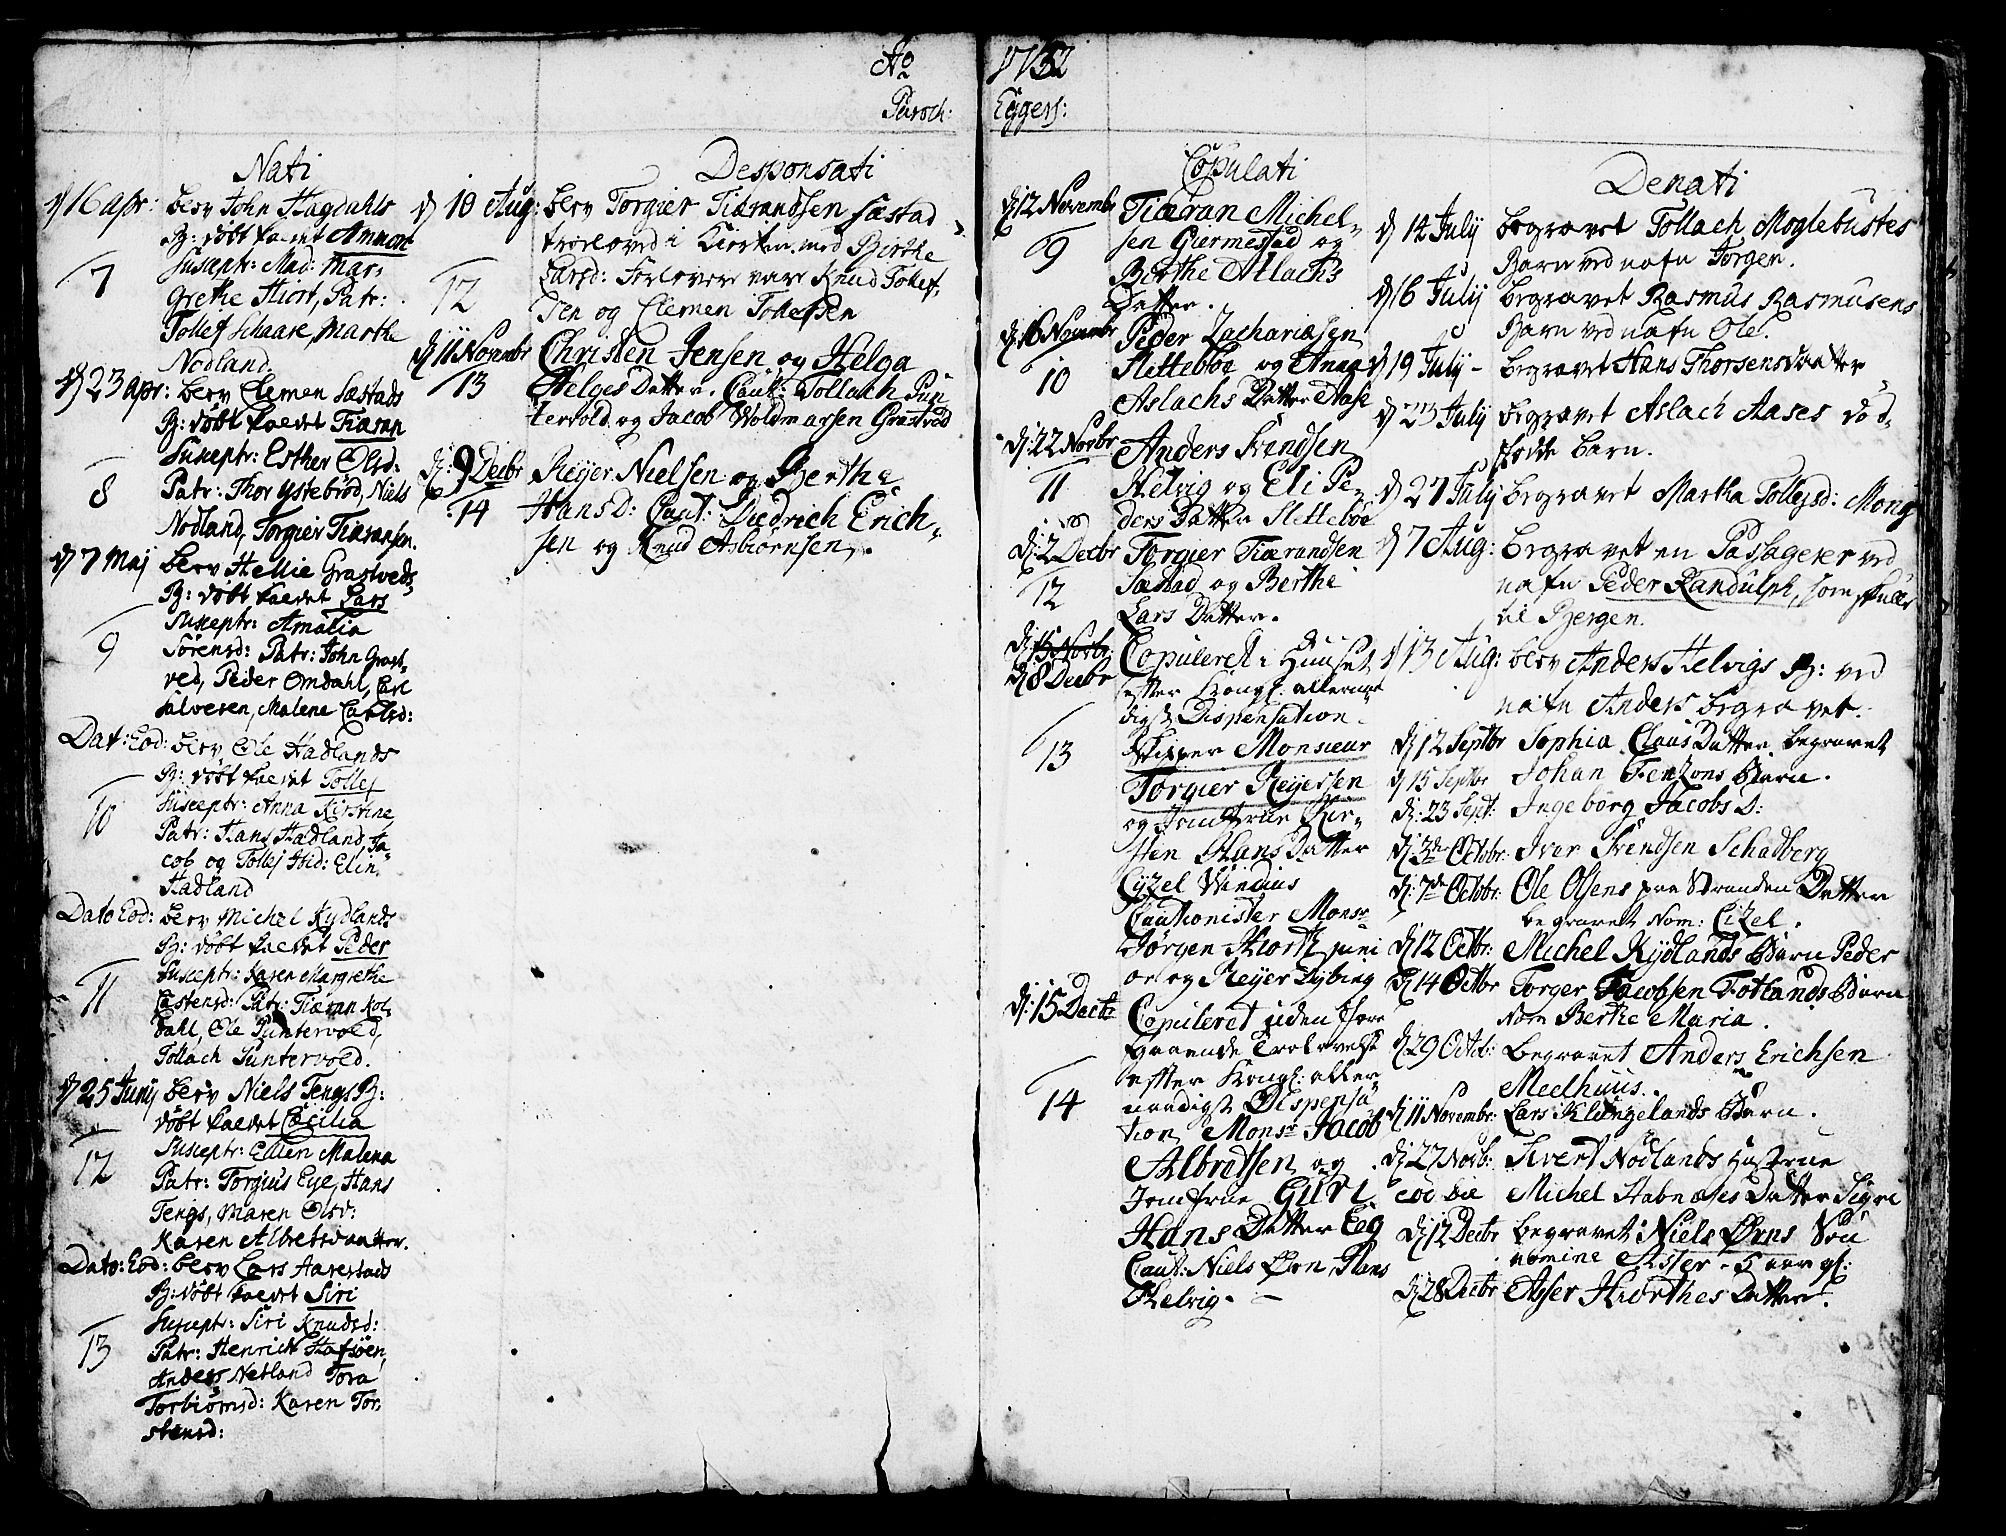 Ao 1732
Paroch: Eggers:
Nati
d 16 apr: blev John Hagdahls
B: døbt kaldet Ammon
7
Suseptr: Mad: Mar-
Grethe Hiort, Patr:
Tollef Schaare, Marthe
Nodland
d 23 apr: blev Clemen Sæstads
B: døbt kaldet Tiæran
Suseptr: Esther Olsd:
8
Patr: Thor Ystebrød, Niels
Nodland, Torgier Tiæransen.
d 7 Maj blev Hellie Grastveds
B: døbt kaldet Lars
Suseptr: Amalia
9
Sörensd: Patr: John Grast-
ved, Peder Omdahl, Carl
Salvesen, Malene Carlsd:
Dat: Eod: blev Ole Hadlands
B: døbt kaldet Tollef
10
Suseptr: Anna Kirstine
Patr: Hans Hadland, Ja-
cob og Tollef Ibid: Elin
Hadland
Dato Eod: blev Michel Kydlands
B: døbt kaldet Peder
11
Suseptr: Karen Margrethe
Castensd: Patr: Tiæran Kol-
dahl, Ole Puntervold,
Tollach Puntervold.
d 25 Junij blev Niels Tengs B:
døbt kaldet Cæcilia
12
Suseptr: Ellen Malena
Patr: Torgius Eye, Hans
Tengs, Maren Olsd:
Karen Albretsdaatter.
Dato: Eod: blev Lars Aarestads
B: døbt kaldet Siri
Suseptr: Siri Knudsd:
13
Patr: Henrich Hafsöen,
Anders Netland Tora
Torbiörnsd: Karen Tor-
stensd:
Desponsati
d 10 Aug: blev Torgier Tiærandsen Sæstad
troloved i Kirken med Birthe
12
Larsd: Forlovere vare Knud Tollef-
sen og Clemen Tollefsen
d 11 Novembr Christen Jensen og Helga
13
Helges Datter. Caut: Tollach Pun
tervold og Jacob Woldmarsen Grastved
d: 9 Decbr Reyer Nielsen og Berthe
14
HansD: Caut: Diedrich Erich-
sen og Knud Asbiörnsen.
Copulati
d 12 Novembr Tiæran Michel-
9
sen Giermestad og
Birthe Atlachs
Datter.
d 16 Novembr Peder Zachariasen
10
Slettebøe og Anna
Aslachs Datter Aase
d: 22 Novbr Anders Svendsen
11
Helvig og Eli Pe-
ders Datter Slettebøe
d: 2 Decbr Torgier Tiærandsen
12
Sæstad og Berthe
Lars Datter.
d 15 Novbr:
d 8 Decbr
Copuleret i Huuset
efter Kongl: allernaa
digst Dispensation
13
Skipper Monsieur
Torgier Reyersen
og Jomfrue Kir-
sten Hans Datter
Cyzel Windius
Cautionister Monsr
Jørgen Hiorth juni
or og Reyer Nybing
d: 15 Decbr
Copuleret uden fore
gaaende Trolovelse
efter Kongl: aller
14
naadigst Dispensa
tion Monsr Jacob
Albretsen og
Jomfrue Guri
Hans Datter Eeg
Caut: Niels Örn, Hans
Helvig.
Denati
d 14 July begravet Tollach Moglebustes
Barn ved nafn Jorgen.
d 16 July begravet Rasmus Rasmusens
Barn ved nafn Ole.
d 19 July - begravet Hans Thorsensdaatter
d 23 July begravet Aslach Aases død-
fødde barn.
d 27 July begravet Martha Tollefsd: Mong
d 7 Aug: begravet en Passagerer ved
nafn Peder Randulph, som skulle
til Bergen.
d 13 Aug: blev Anders Helvigs B: ved
nafn Anders begravet.
d 12 Septbr Sophia ClausDatter begravet
d 15 Septbr Johan Fentzons Barn.
d: 23 Sept: Ingeborg Jacobs D:
d 3de Octobr: Iver Svendsen Schadberg
d: 7de Octobr: Ole Olsens paa Stranden Datter
begravet Nom: Cizel.
d 12 Octbr: Michel Kydlands Barn Peder
d 14 Octbr Torger Jacobsen Fotlands Barn
Nom Berthe Maria.
d 29 Octob: begravet Anders Erichsen
Meelhuus.
d 11 Novembr: Lars Klungelands Barn.
d: 27 Novb: Sivert Nödlands Hustrue
eod die Michel Stabnases Datter Sigre
d 12 Decbr begravet Niels Örns Søn
nomine Asser - 5 aar gl:
d 28 Decbr Asser Hiorthes Datter.